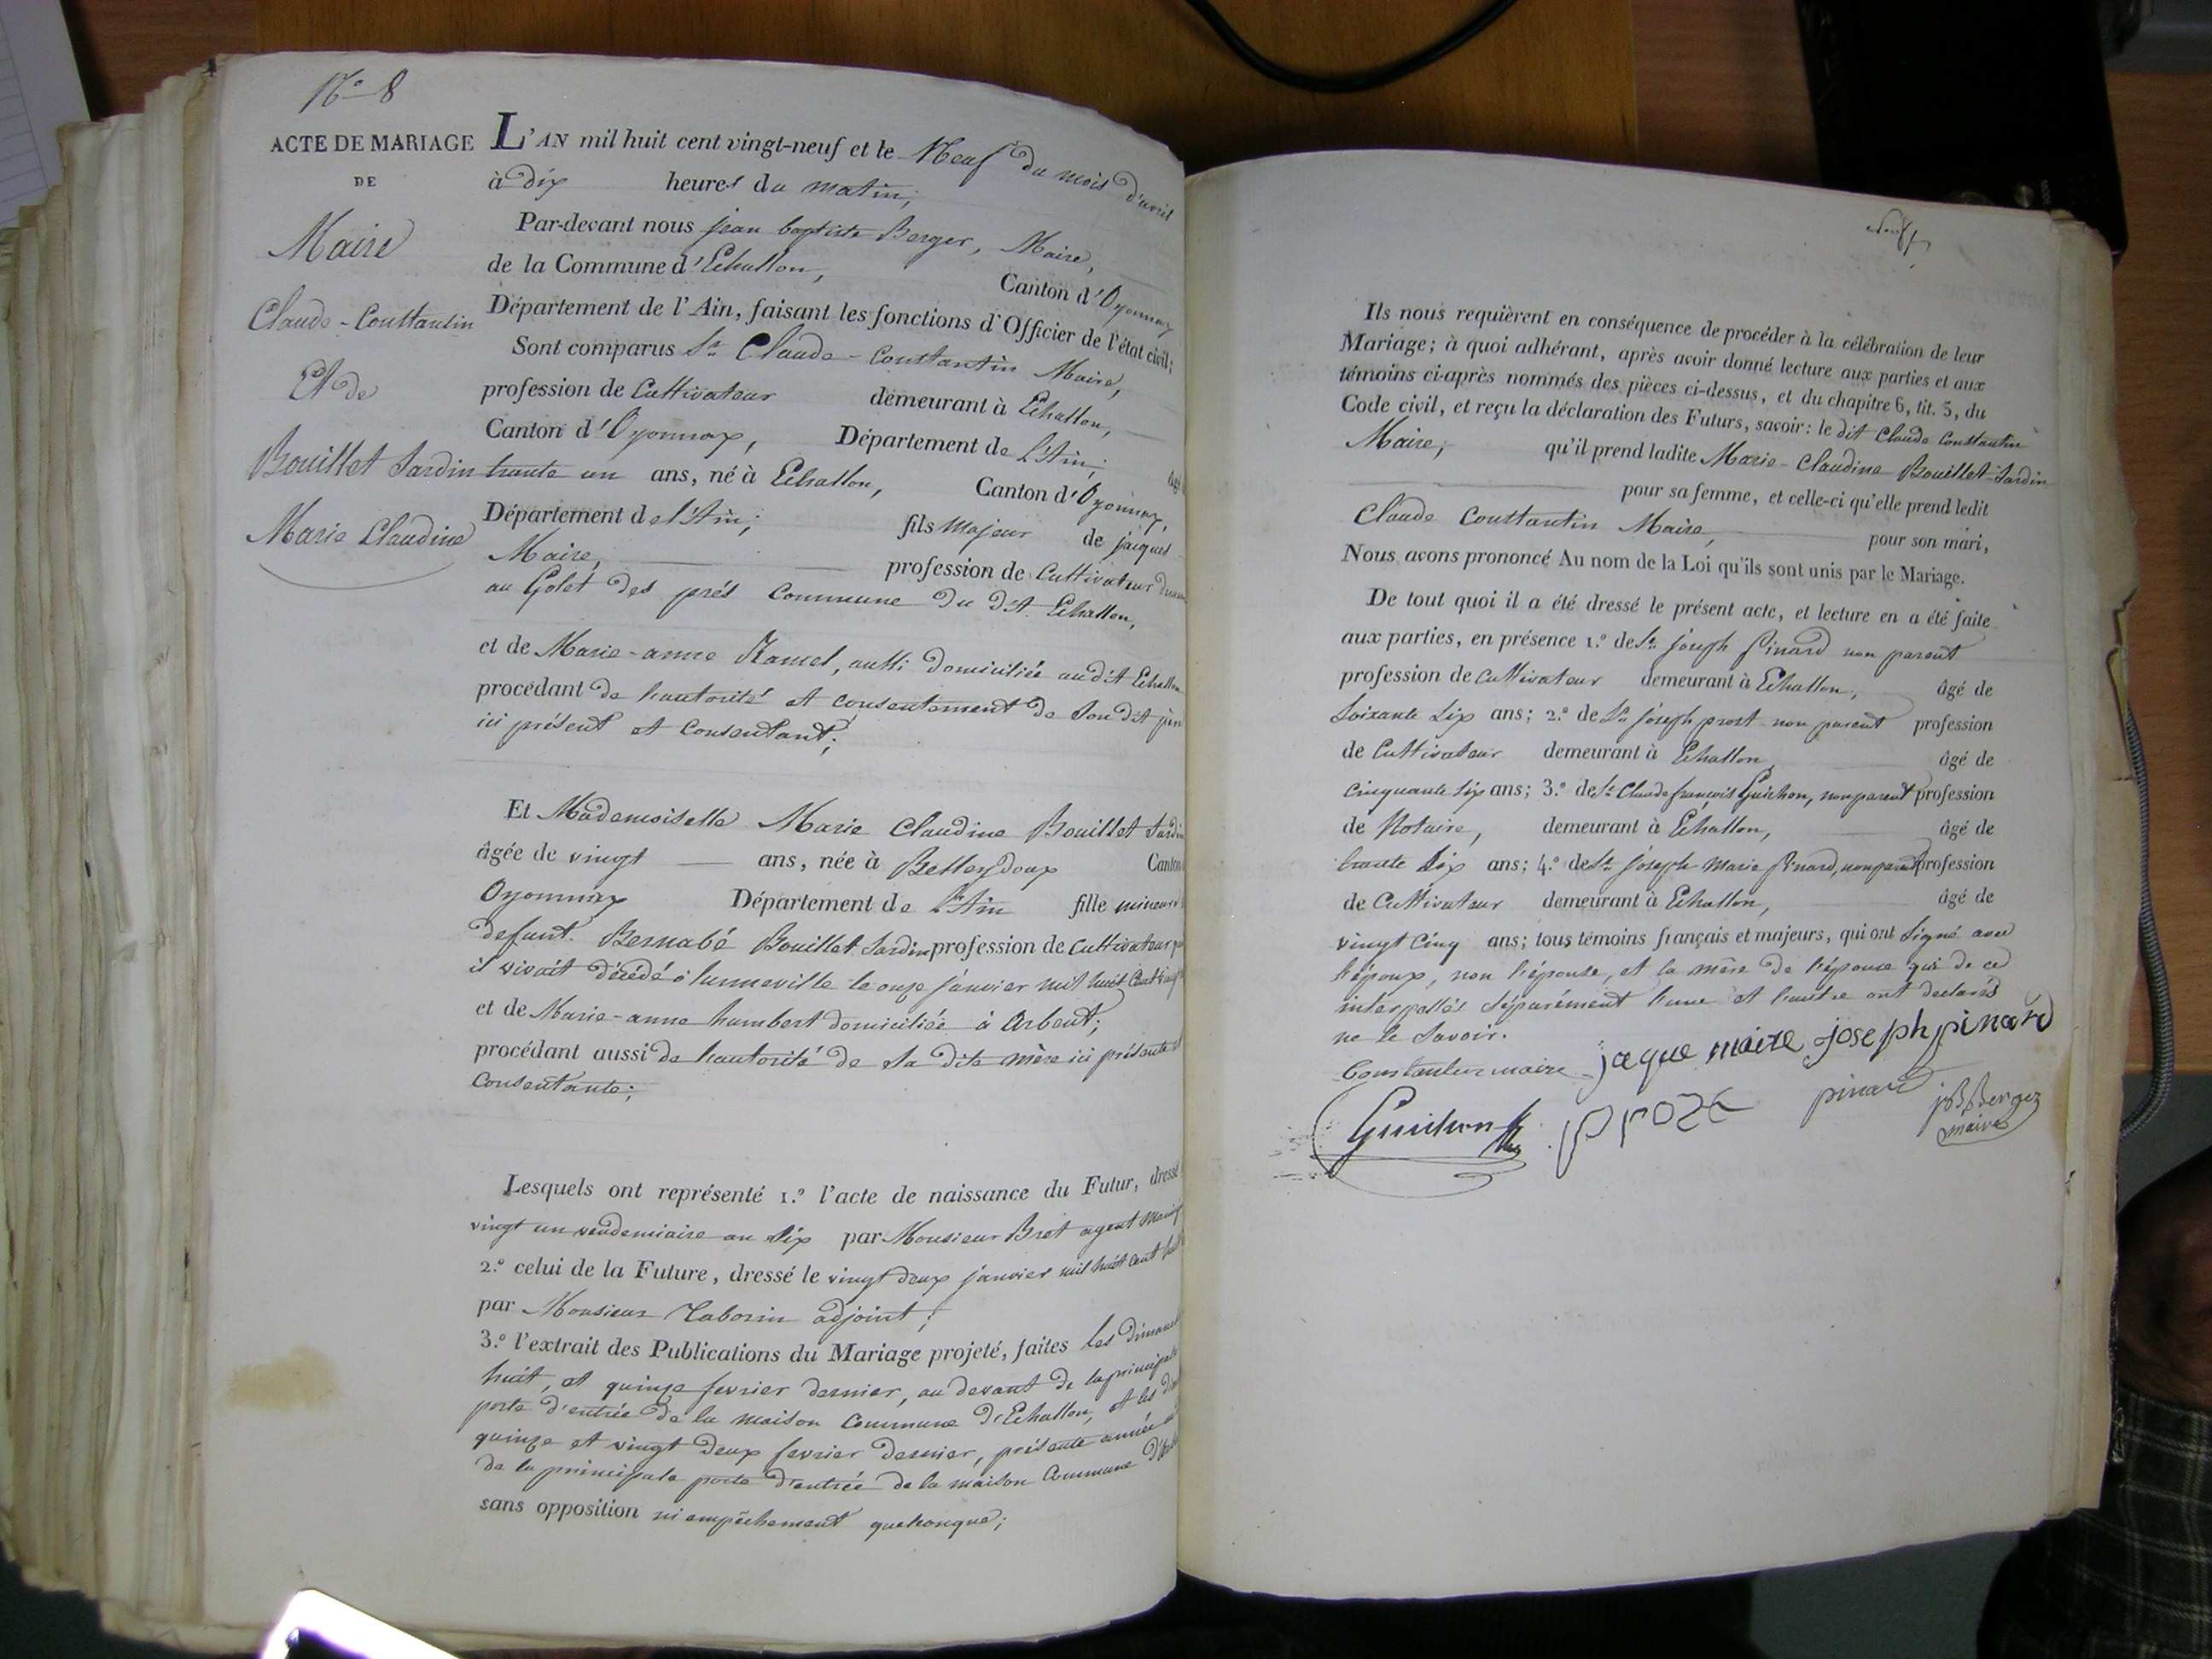 N.° 8
ACTE DE MARIAGE
DE
Maire
Claude-Constantin
Et de
Bouillet Jardin
Marie Claudine
L'AN mil huit cent vingt-neuf et le Neuf du mois d'avril
à dix heures du matin,
Par-devant nous jean baptiste Berger, Maire,
de la Commune d'Echallon, Canton d'Oyonnax
Département de l'Ain, faisant les fonctions d'Officier de l'état civil;
Sont comparus Sr. Claude-Constantin Maire,
profession de Cultivateur demeurant à Echallon,
Canton d'Oyonnax, Département de L'Ain, âgé
trente un ans, né à Echallon, Canton d'Oyonnax,
Département de l'Ain; fils majeur de jacques
Maire, profession de Cultivateur
au Golet des prés Commune du dit Echallon,
et de Marie-anne Ramel, aussi domiciliée audit Echallon
procédant de l'autorité et consentement de son dit père
ici présent et consentant;
Et Mademoiselle Marie Claudine Bouillet Jardin
âgée de vingt ans, née à Belleydoux Canton
Oyonnax Département de L'Ain fille mineure
defunt Bernabé Bouillet Jardin profession de Cultivateur
il vivait décédé à lunneville le onze janvier mil huit Cent
et de Marie-anne humbert domiciliée à Arbent;
procédant aussi de l'autorité de sa dite mère ici présente et
Consentante;
Lesquels ont représenté 1.° l'acte de naissance du Futur, dressé
vingt un vendemiaire an six par Monsieur Bret agent
2.° celui de la Future, dressé le vingt deux janvier mil huit cent
par Monsieur Taborin adjoint;
3.° l'extrait des Publications du Mariage projeté, faites les
huit, et quinze fevrier dernier, au devant de la principale
porte d'entrée de la maison Commune d'Echallon, et les
quinze et vingt deux fevrier dernier, présente année
de la principale porte d'entrée de la maison Commune
sans opposition ni empêchement quelconque;
neuf
Ils nous requièrent en conséquence de procéder à la célébration de leur
Mariage; à quoi adhérant, après avoir donné lecture aux parties et aux
témoins ci-après nommés des pièces ci-dessus, et du chapitre 6, tit. 5, du
Code civil, et reçu la déclaration des Futurs, savoir: le dit Claude Constantin
Maire, qu'il prend ladite Marie-Claudine Bouillet-Jardin
pour sa femme, et celle-ci qu'elle prend ledit
Claude Constantin Maire, pour son mari,
Nous avons prononcé Au nom de la Loi qu'ils sont unis par le Mariage.
De tout quoi il a été dressé le présent acte, et lecture en a été faite
aux parties, en présence 1.° de Sr. joseph Pinard non parent
profession de Cultivateur demeurant à Echallon, âgé de
soixante six ans; 2.° de Sr. joseph prost non parent profession
de Cultivateur demeurant à Echallon, âgé de
cinquante six ans; 3.° de Sr. Claude françois Guichon, non parent profession
de Notaire, demeurant à Echallon, âgé de
trente six ans; 4.° de Sr. joseph Marie Pinard, non parent profession
de Cultivateur demeurant à Echallon, âgé de
vingt cinq ans; tous témoins français et majeurs, qui ont signé avec
l'époux, non l'épouse, et la mère de l'épouse qui de ce
interpellés séparément l'une et l'autre ont declarés
ne le savoir.
Constantin maire jaque maire joseph pinard
Guichon prost pinard jB Berger
maire